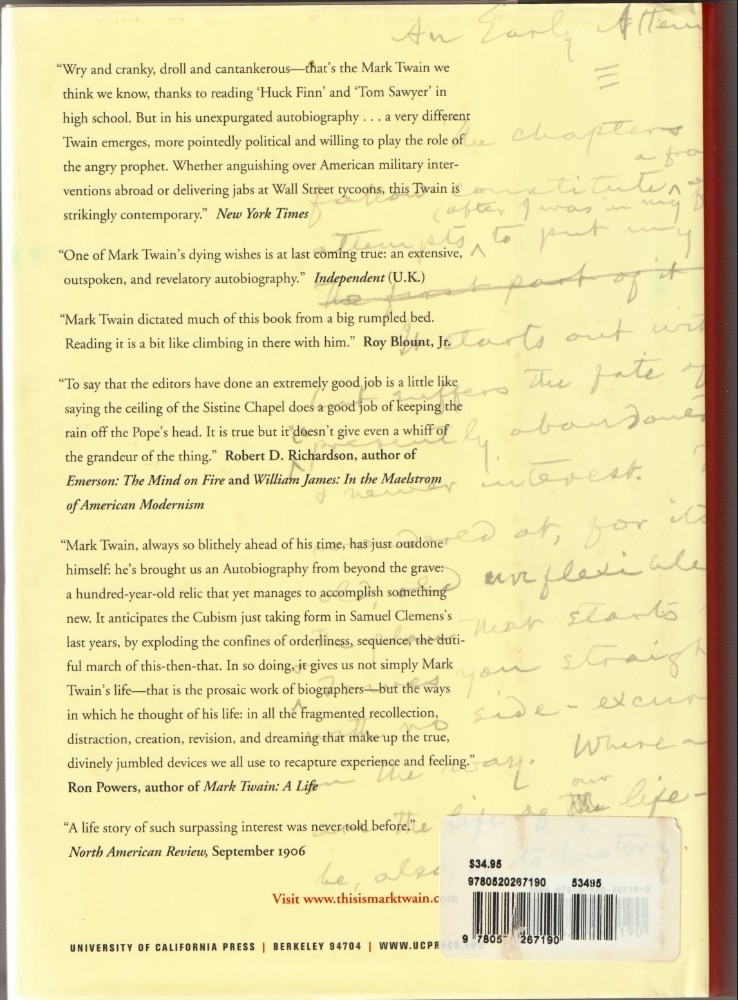 An Early Attem
“Wry and cranky, droll and cantankerous—that’s the Mark Twain we
think we know, thanks to reading ‘Huck Finn’ and ‘Tom Sawyer’ in
high school. But in his unexpurgated autobiography . . . a very different
Twain emerges, more pointedly political and willing to play the role of
the angry prophet. Whether anguishing over American military inter-
ventions abroad or delivering jabs at Wall Street tycoons, this Twain is
strikingly contemporary.” New York Times
“One of Mark Twain’s dying wishes is at last coming true: an extensive,
outspoken, and revelatory autobiography.” Independent (U.K.)
“Mark Twain dictated much of this book from a big rumpled bed.
Reading it is a bit like climbing in there with him.” Roy Blount, Jr.
“To say that the editors have done an extremely good job is a little like
saying the ceiling of the Sistine Chapel does a good job of keeping the
rain off the Pope’s head. It is true but it doesn’t give even a whiff of
the grandeur of the thing.” Robert D. Richardson, author of
Emerson: The Mind on Fire and William James: In the Maelstrom
of American Modernism
“Mark Twain, always so blithely ahead of his time, has just outdone
himself: he’s brought us an Autobiography from beyond the grave:
a hundred-year-old relic that yet manages to accomplish something
new. It anticipates the Cubism just taking form in Samuel Clemens’s
last years, by exploding the confines of orderliness, sequence, the duti-
ful march of this-then-that. In so doing, it gives us not simply Mark
Twain’s life—that is the prosaic work of biographers—but the ways
in which he thought of his life: in all the fragmented recollection,
distraction, creation, revision, and dreaming that make up the true,
divinely jumbled devices we all use to recapture experience and feeling.”
Ron Powers, author of Mark Twain: A Life
“A life story of such surpassing interest was never told before.”
North American Review, September 1906
Visit www.thisismarktwain.c
UNIVERSITY OF CALIFORNIA PRESS | BERKELEY 94704 | WWW.UCPR
chapters
constitute
(after I was in my
attempts to put my
the first part of it
It starts out wit
suffers the fate of
presently abandoned
a newer interest.
at, for its
old, old unflexible
that starts
you straigh
no side-excur
the way. Where-
our
the life-
be, also, history
$34.95
9780520267190 53495
9 7805 267190